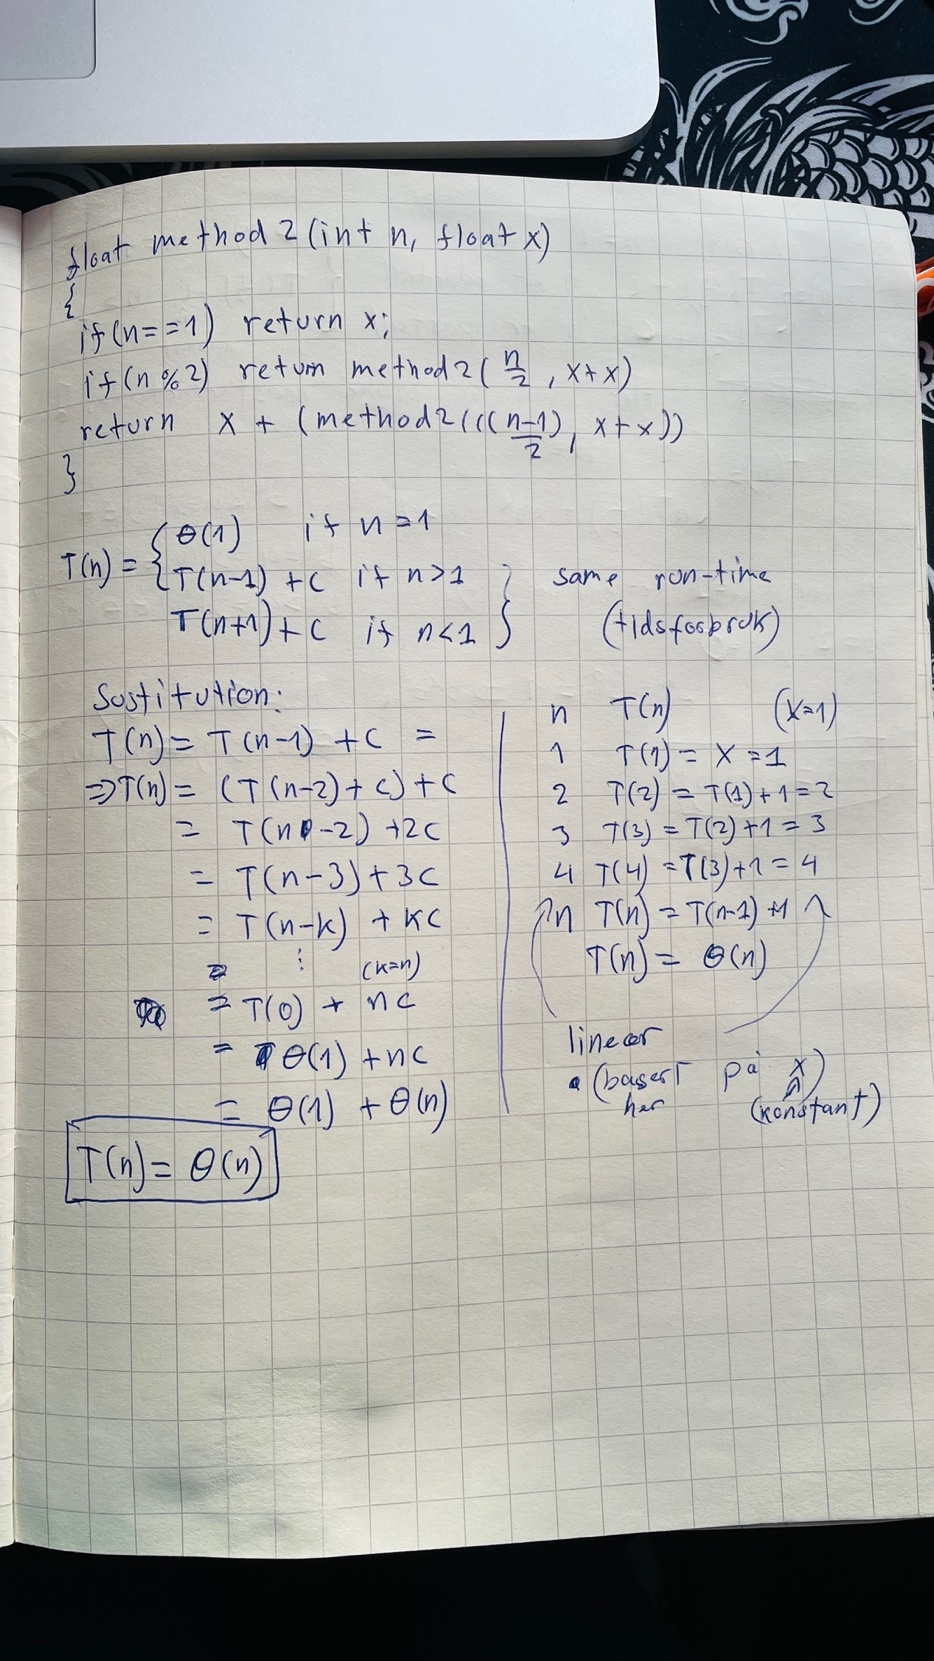 float method2(int n, float x)
{
if(n==1) return x;
if(n%2) return method2(n/2, x+x)
return x + (method2(((n-1)/2, x+x))
}
T(n) = { Θ(1) if n=1
T(n-1) + c if n>1
T(n+1) + c if n<1 } same run-time
(tidsforbruk)
Sustitution:
T(n) = T(n-1) + c =
=> T(n) = (T(n-2) + c) + c
= T(n-2) + 2c
= T(n-3) + 3c
= T(n-k) + kc
⋮ (k=n)
= T(0) + nc
= Θ(1) + nc
= Θ(1) + Θ(n)
T(n) = Θ(n)
n T(n) (x=1)
1 T(1) = x = 1
2 T(2) = T(1)+1 = 2
3 T(3) = T(2)+1 = 3
4 T(4) = T(3)+1 = 4
n T(n) = T(n-1) + 1
T(n) = Θ(n)
linear
(basert på x)
her (konstant)